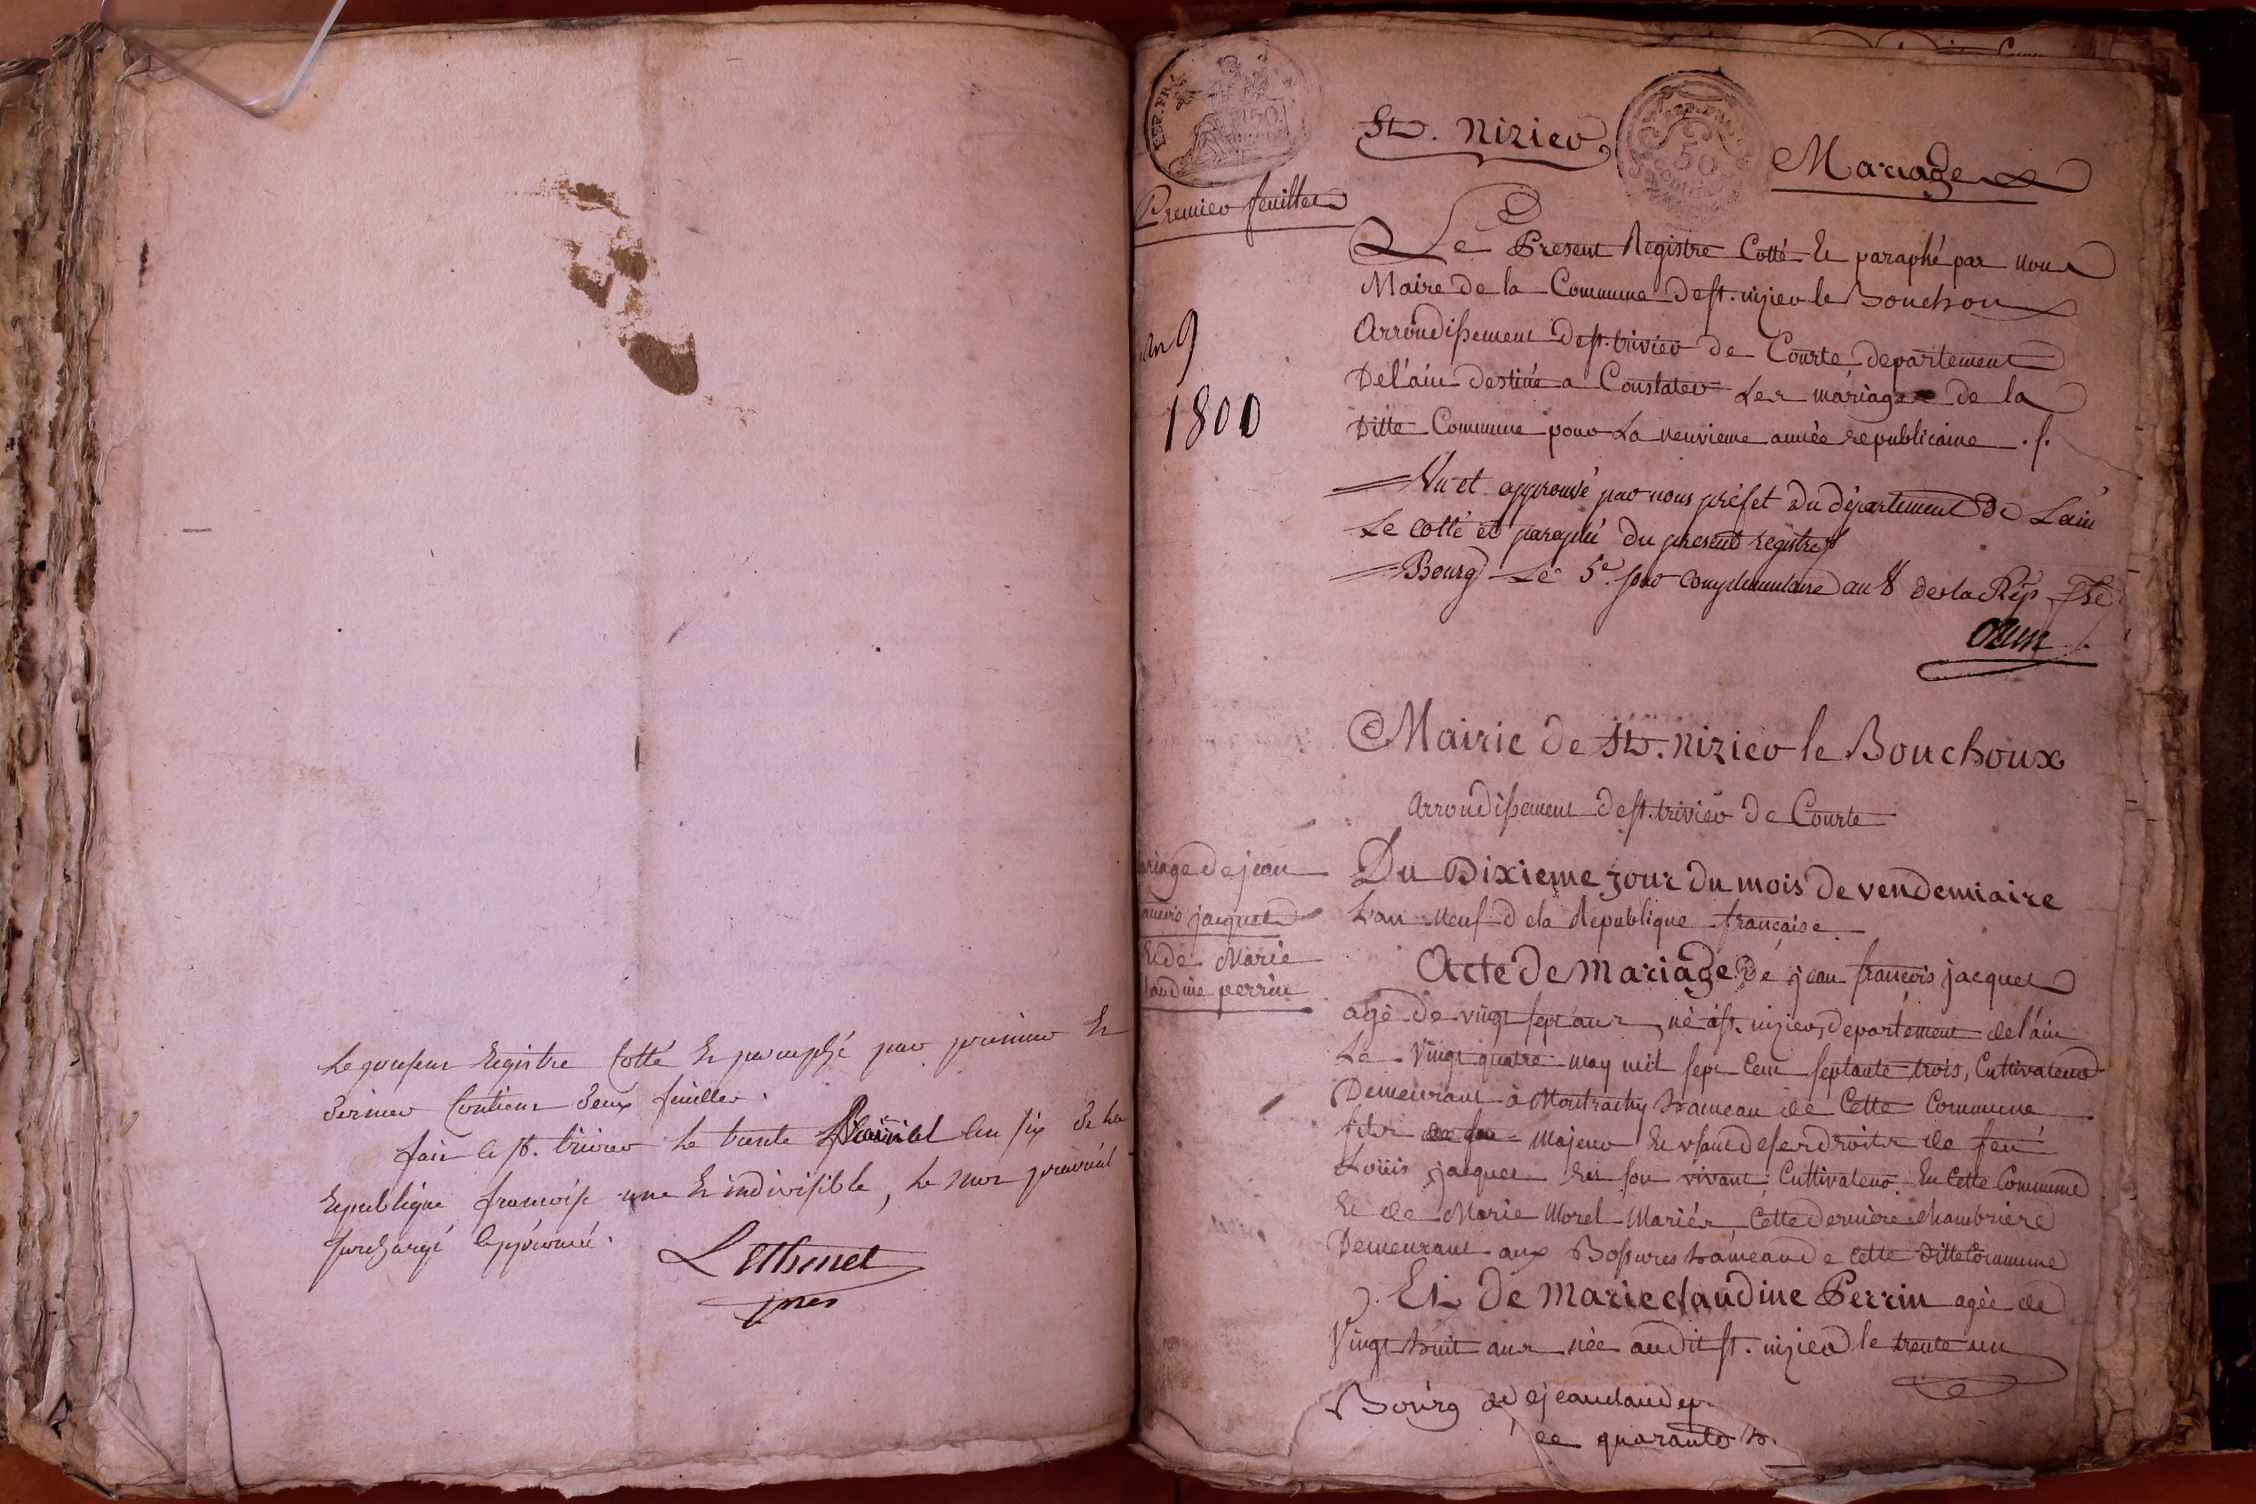 Le present registre Cotté et paraphé par premier et
dernier Contient deux feuillets.
fait a st. trivier le trente l'an six de la
republique françoise une et indivisible, le mot
surchargé approuvé.
REP. FRA.
50
St. Nizier
Mariage
Premier feuillet
Le Present Registre Cotté et paraphé par nous
Maire de la Commune de st. nizier le Bouchoux
Arrondissement de st. trivier de Courte departement
De l'ain destiné a Constater Les mariages de la
Ditte Commune pour La neuvieme année republicaine
an 9
1800
Vu et approuvé par nous préfet du département de L'ain
Le cotté et paraphé du présent registre
Bourg Le 5e. jour complémentaire an 8 de la Rép. fse
Mairie de St. Nizier le Bouchoux
Arrondissement de st. trivier de Courte
Du Dixieme jour du mois de vendemiaire
L'an Neuf de la Republique française.
ariage de jean
jacquet
Et de Marie
laudine perrin
Acte de Mariage de jean françois jacquet
agé de vingt sept ans, né a st. nizier, departement de l'ain
Le vingt quatre may mil sept Cent septante trois, Cultivateur
Demeurant à Montrachy hameau de Cette Commune
fils Majeur Et usant de ses droits de feu
Loüis jacquet En son vivant Cultivateur En Cette Commune
Et de Marie Morel Mariés, Cette derniere chambriere
Demeurant aux Bossures hameau de Cette ditte Commune
Et De Marie claudine Perrin agée de
Vingt huit ans née audit st. nizier le trente un
Bourg de jean claude
de quarante